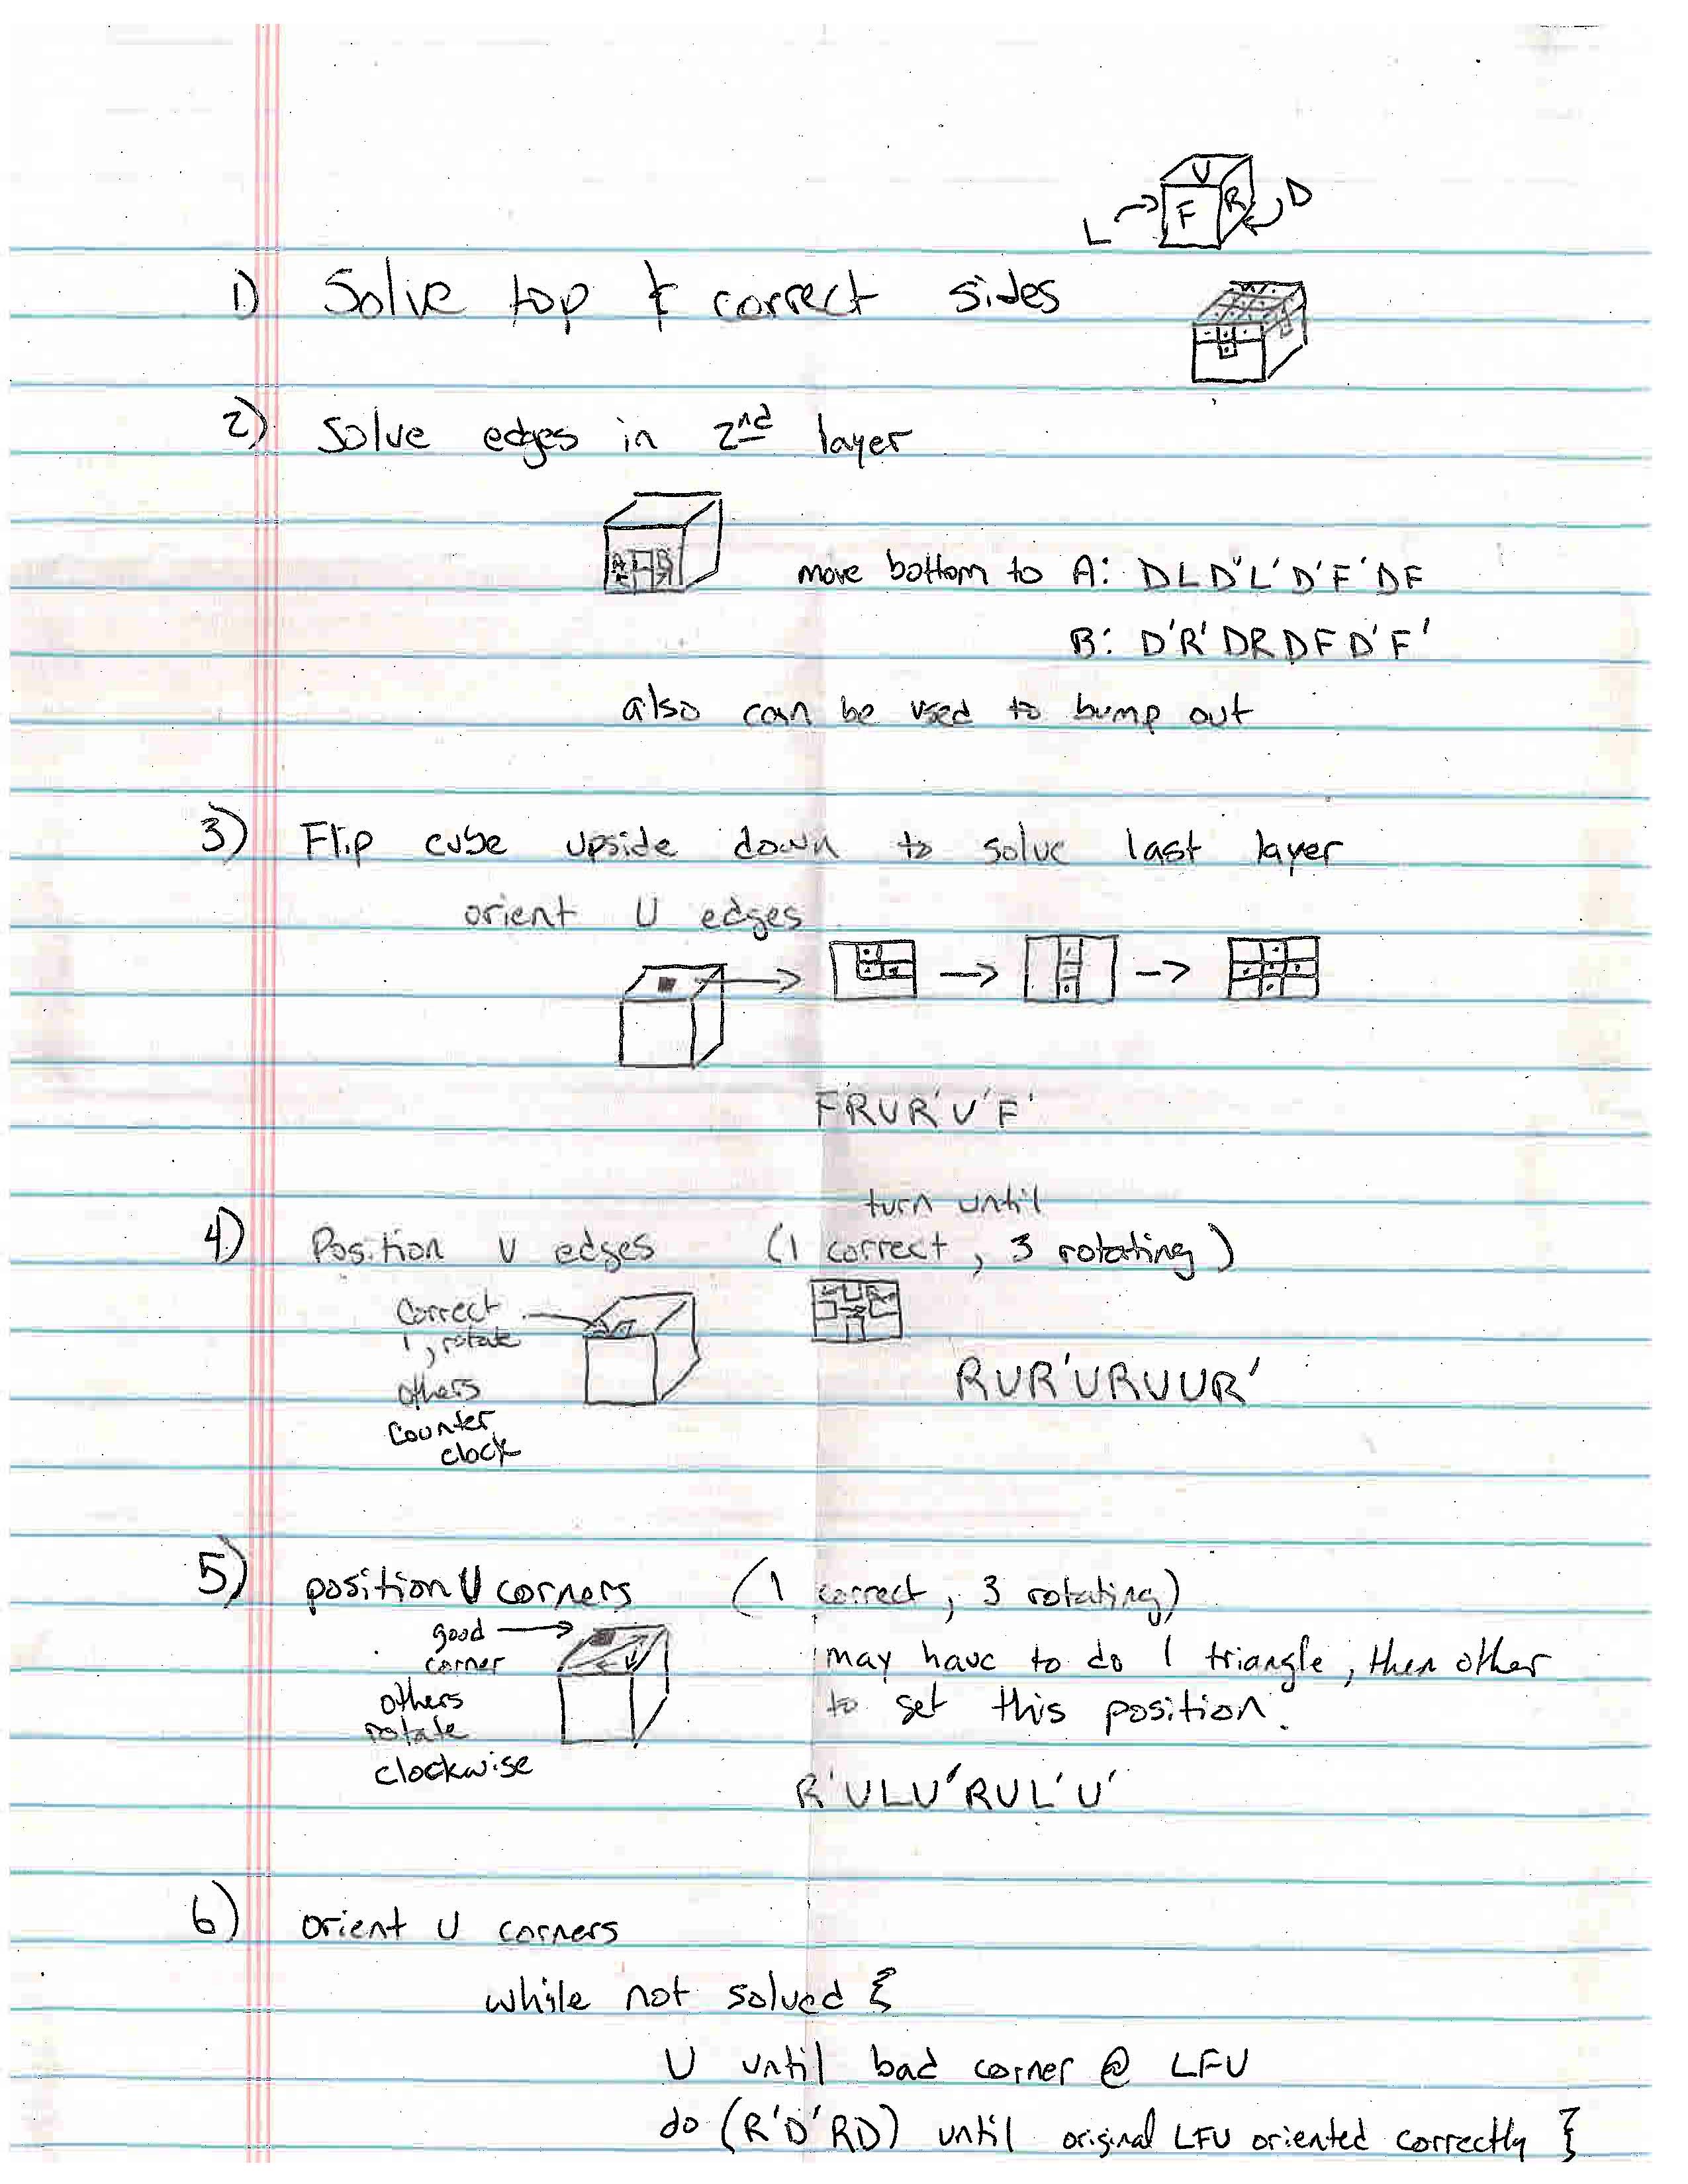 U
F R D
L
1) Solve top & correct sides
2) Solve edges in 2nd layer
A B
move bottom to A: DLD'L'D'F'DF
B: D'R'DRDFD'F'
also can be used to bump out
3) Flip cube upside down to solve last layer
orient U edges
FRUR'U'F'
turn until
4) Position U edges (1 correct, 3 rotating)
Correct
1, rotate
others
counter
clock
RUR'URUUR'
5) position U corners (1 correct, 3 rotating)
good
corner
others
rotate
clockwise
may have to do 1 triangle, then other
to set this position.
R'ULU'RUL'U'
6) orient U corners
while not solved {
U until bad corner @ LFU
do (R'D'RD) until original LFU oriented correctly }